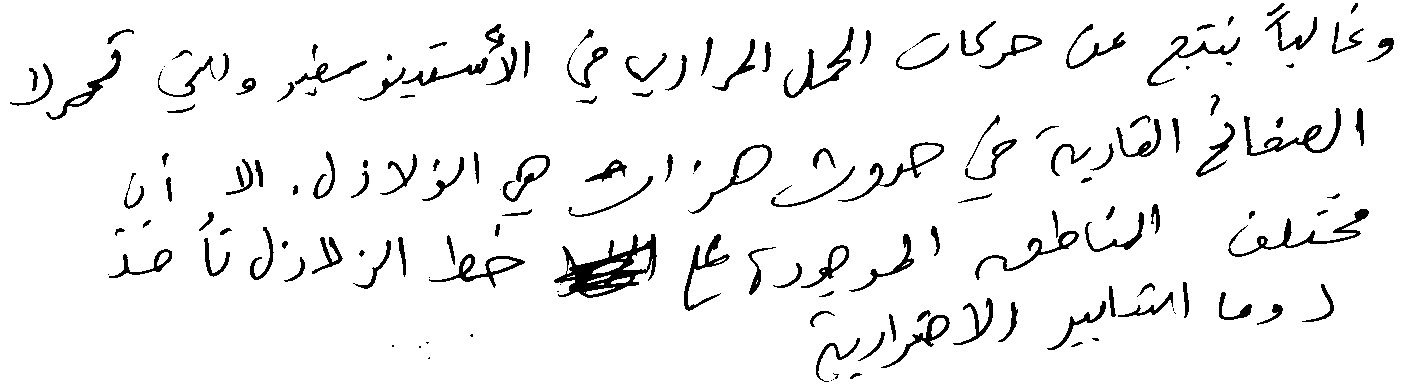 وغالباً ينتج عن حركات الحمل الحراري في الأستينوسفير والتي تحرك
الصفائح القارية في حدوث هزات هي الزلازل. الا أن
مختلف المناطق الموجودة على خط الزلازل تأخذ
دوما التدابير الاحترازية